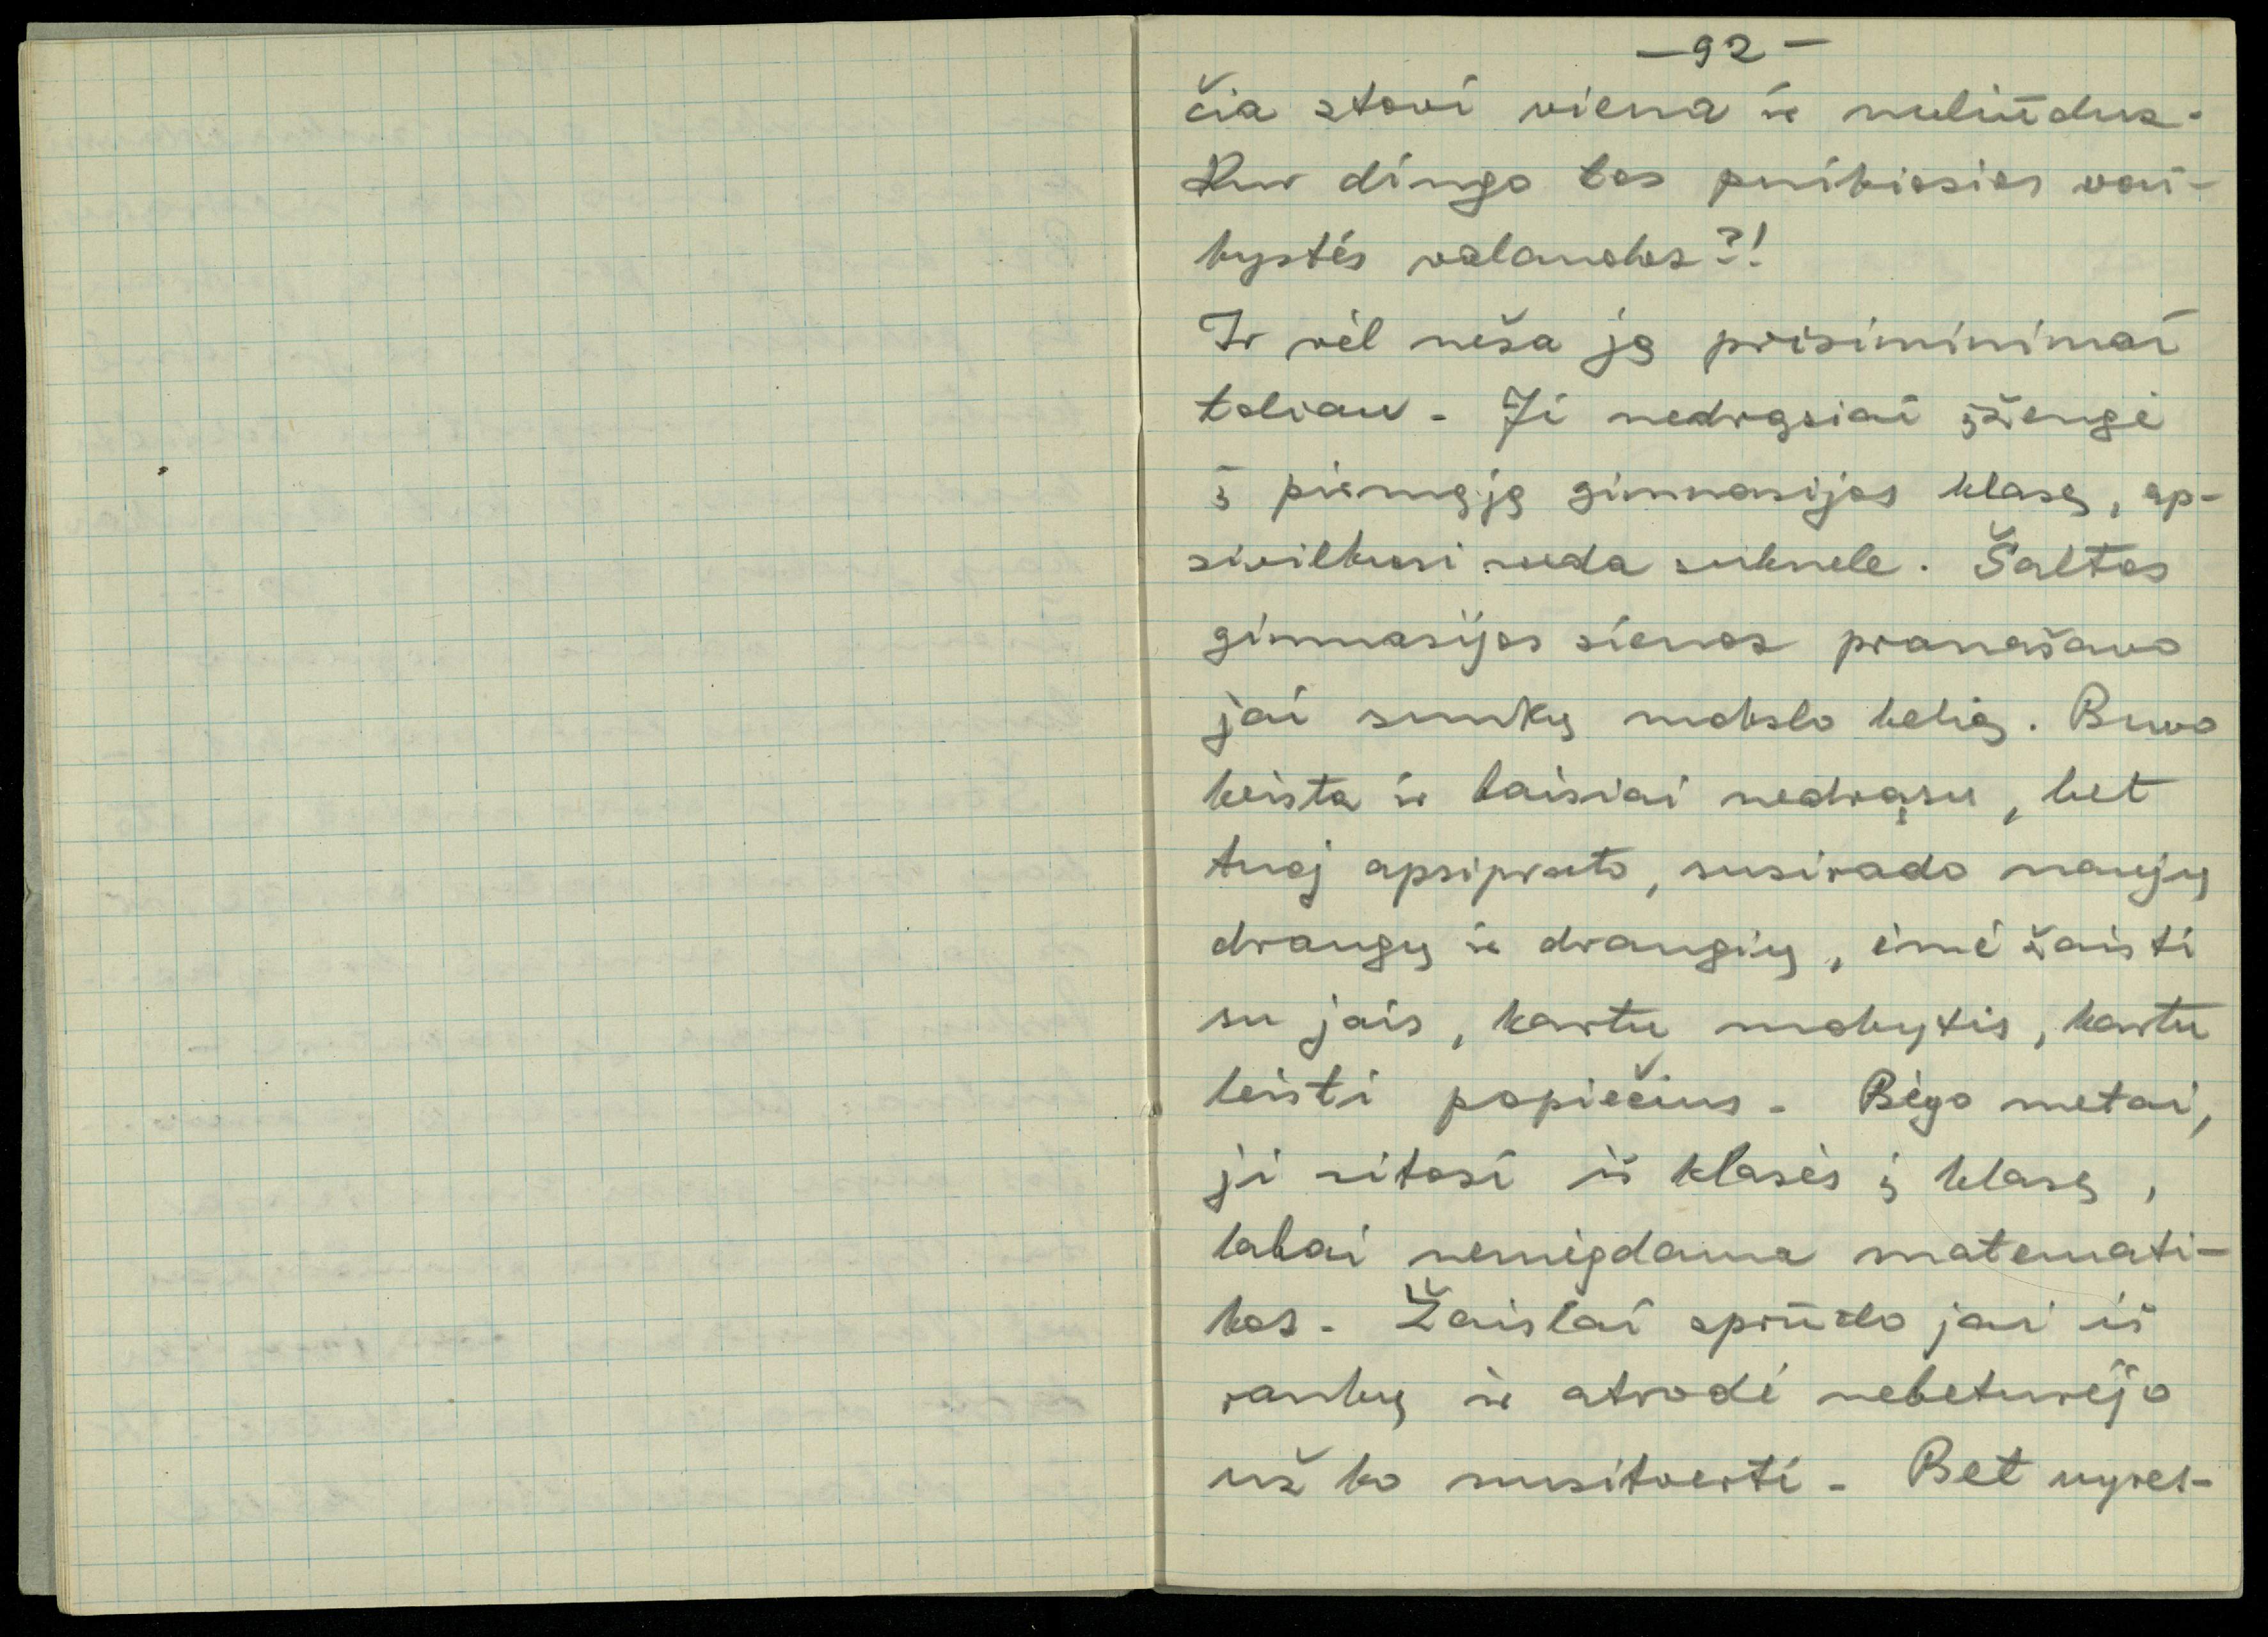 —92—
čia stovi viena ir nuliūdus.
Kur dingo tos puikiosios vai-
kystės valandos?!
Ir vėl neša ją prisiminimai
toliau. Ji nedrąsiai įžengė
į pirmąją gimnazijos klasę, ap-
sivilkusi ruda suknele. Šaltos
gimnazijos sienos pranašavo
jai sunkų mokslo kelią. Buvo
keista ir baisiai nedrąsu, bet
tuoj apsiprato, susirado naujų
draugų ir draugių, ėmė žaisti
su jais, kartu mokytis, kartu
leisti popiečius. Bėgo metai,
ji ritosi iš klasės į klasę,
labai nemėgdama matemati-
kos. Žaislai sprūdo jai iš
rankų ir atrodė nebeturėjo
už ko nusitverti. Bet vyres-